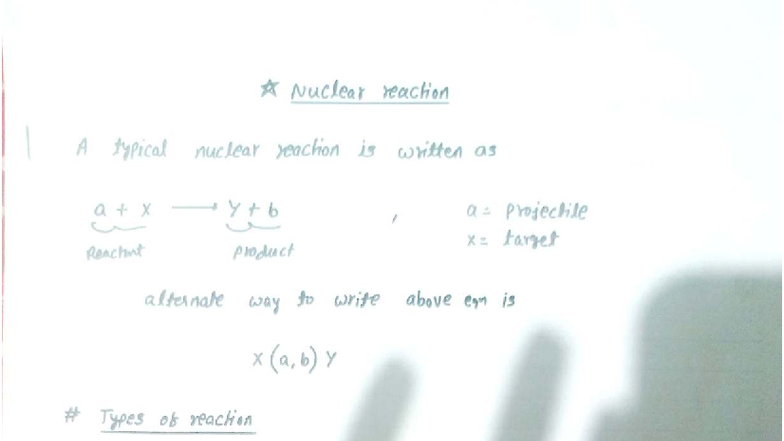 ☆ Nuclear reaction
A typical nuclear reaction is written as
a + x ⟶ Y + b , a = projectile
Reactant product x = target
alternate way to write above eqn is
x (a, b) Y
# Types of reaction